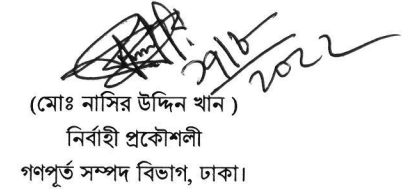 ২০২২
(মোঃ নাসির উদ্দিন খান )
নির্বাহী প্রকৌশলী
গণপূর্ত সম্পদ বিভাগ, ঢাকা।